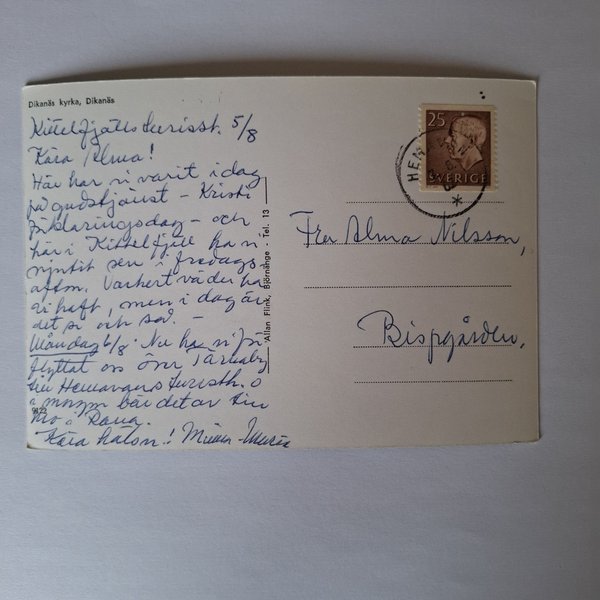 Dikanäs kyrka, Dikanäs
Kittelfjälls turistst. 5/8
Kära Alma!
Här har vi varit i dag
på gudstjänst – Kristi
förklaringsdag – och
här i Kittelfjäll ha vi
njutit sen i fredags
afton. Vackert väder ha
vi haft, men i dag är
det si och så. –
Måndag 6/8. Nu ha vi
flyttat oss över Tärnaby
till Hemavans turisth. o
i morgon bär det av till
Mo i Rana.
Kära hälsn.!
9822
Allan Flink, Björnänge - Tel. 13
25
SVERIGE
HEM
Fru Alma Nilsson,
Bispgården,